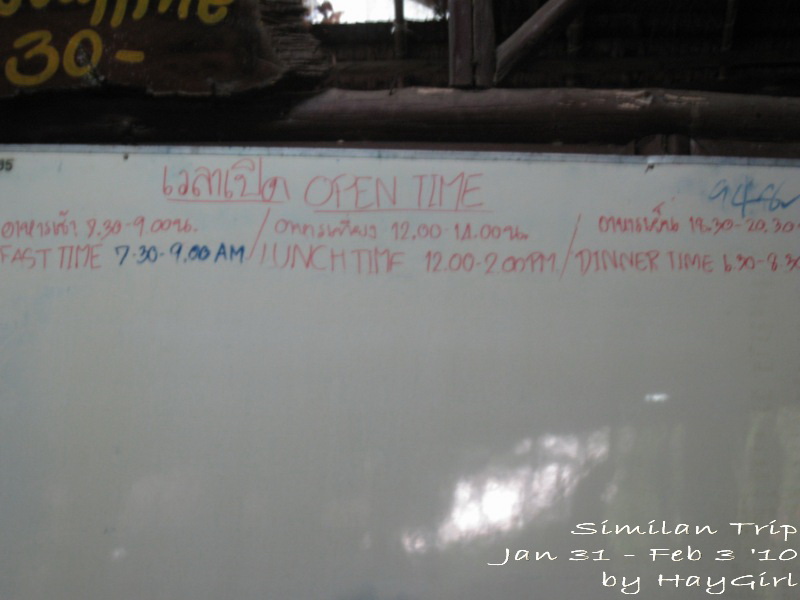 30-
35
เวลาเปิด OPEN TIME
อาหารเช้า 7.30-9.00น. / อาหารเที่ยง 12.00-14.00น. / อาหารเย็น 18.30-20.30
FAST TIME 7-30-9.00 AM / LUNCH TIME 12.00-2.00 PM / DINNER TIME 6.30-8.30
Similan Trip
Jan 31 - Feb 3 '10
by HayGirl